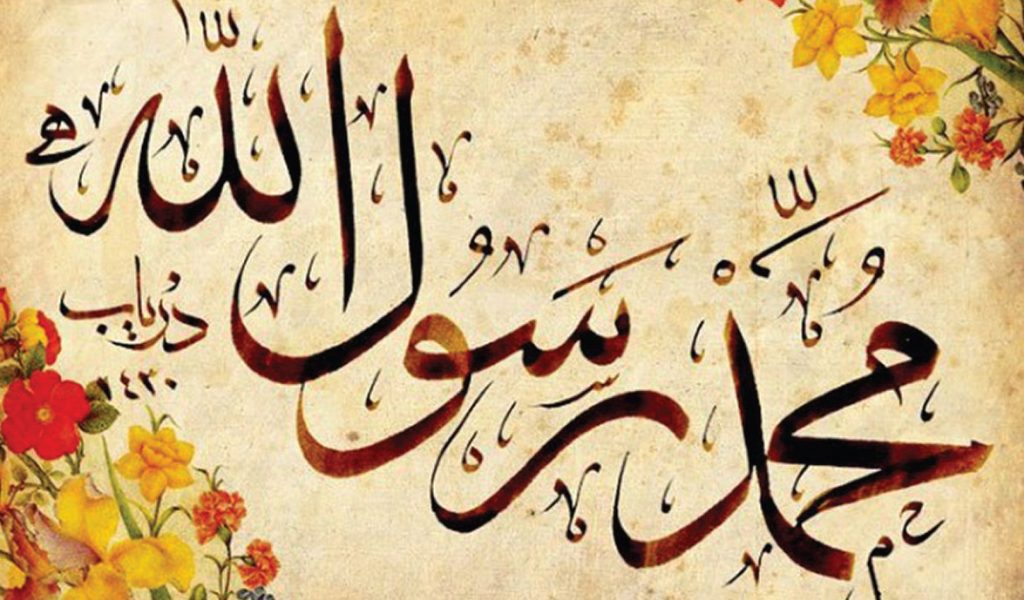 محمد رسول الله
درياب
١٤٢٠